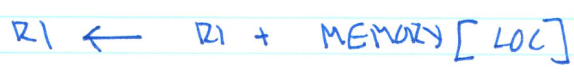 R1 ← R1 + MEMORY [ LOC ]